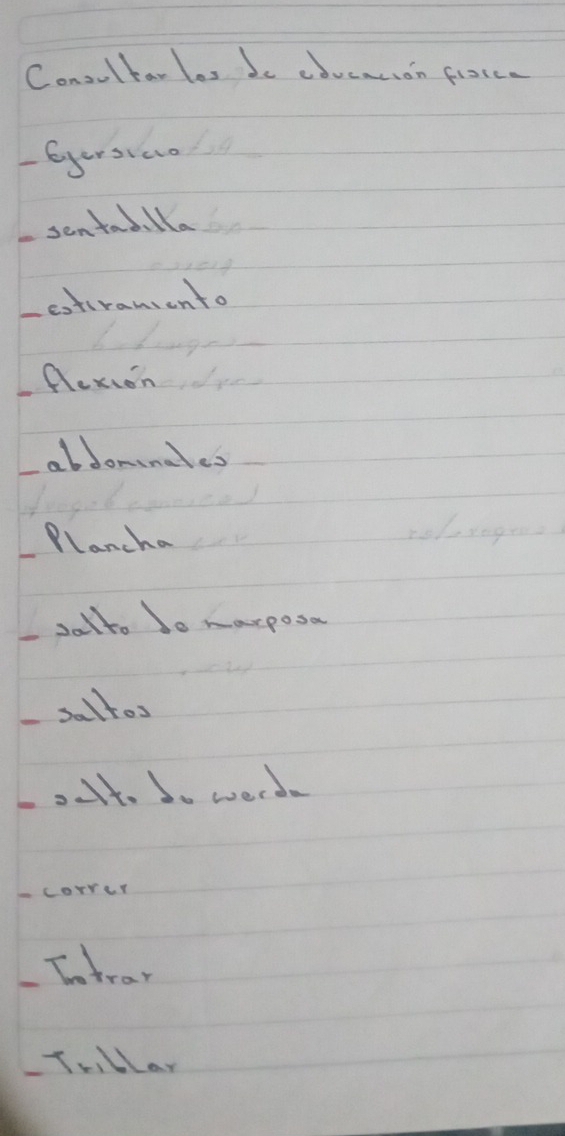 Consultar los de educación fisica
- Ejersicio
- sentadilla
- estiramiento
- flexión
- abdominales
- Plancha
- salto de marposa
- saltos
- salto de cuerda
- correr
- Trotrar
- Triblar